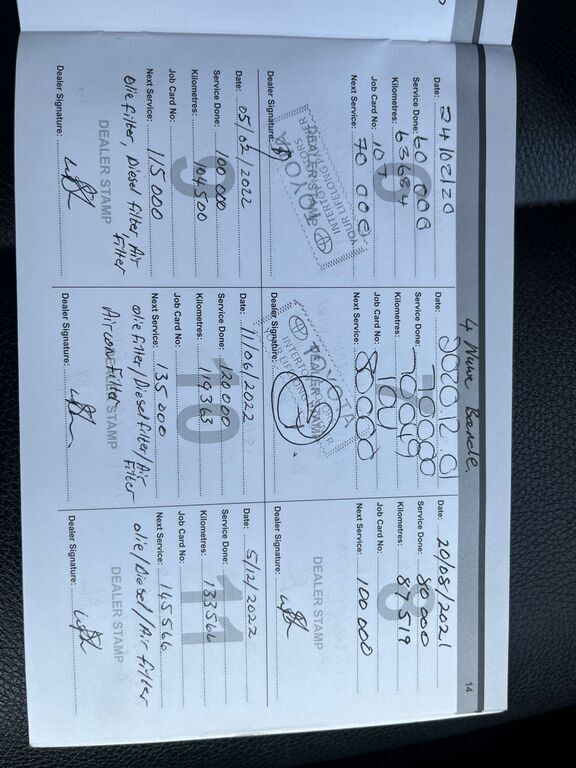 4 Nuwe Bande.
14
6
Date: 24/02/20
Service Done: 60 000
Kilometres: 63684
Job Card No:
Next Service: 70 000
DEALER STAMP
TOYOTA
Dealer Signature:
7
Date: 2020.12.01
Service Done: 70000
Kilometres:
Job Card No:
Next Service: 80000
DEALER STAMP
TOYOTA
Dealer Signature:
8
Date: 20/08/2021
Service Done: 80 000
Kilometres: 87519
Job Card No:
Next Service: 100 000
DEALER STAMP
Dealer Signature:
9
Date: 05/02/2022
Service Done: 100 000
Kilometres: 104500
Job Card No:
Next Service: 115 000
DEALER STAMP
Olie filter, Diesel filter Air
Filter
Dealer Signature:
10
Date: 11/06/2022
Service Done: 120 000
Kilometres: 119363
Job Card No:
Next Service: 135 000
olie filter/Diesel filter/Air
Filter
Aircon Filter
DEALER STAMP
Dealer Signature:
11
Date: 5/12/2022
Service Done:
Kilometres: 133566
Job Card No:
Next Service: 145566
olie/Diesel/Air filter
DEALER STAMP
Dealer Signature: